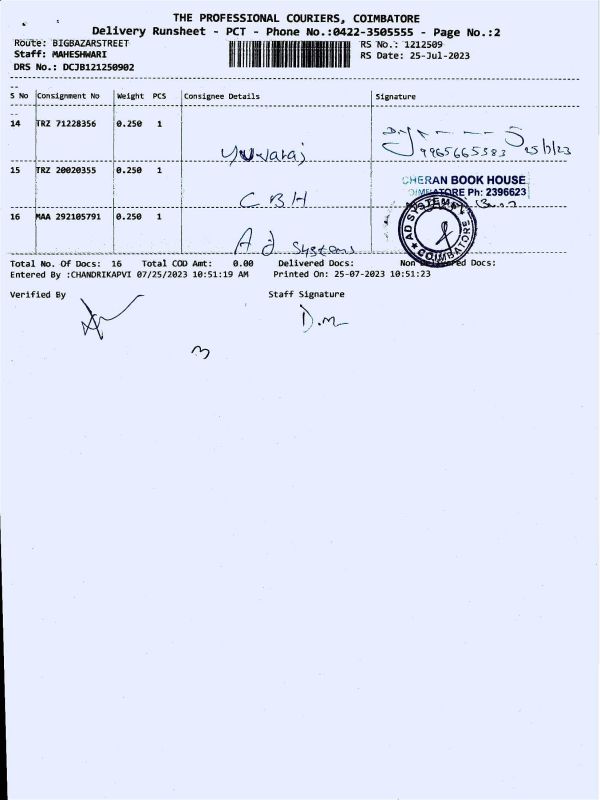 THE PROFESSIONAL COURIERS, COIMBATORE
Delivery Runsheet - PCT - Phone No.:0422-3505555 - Page No.:2
Route: BIGBAZARSTREET
RS No.: 1212509
Staff: MAHESHWARI
RS Date: 25-Jul-2023
DRS No.: DCJB121250902
S No Consignment No Weight PCS Consignee Details Signature
14 TRZ 71228356 0.250 1
Yuvaraj
9965665383 25/7/23
15 TRZ 20020355 0.250 1
CBH
CHERAN BOOK HOUSE
COIMBATORE Ph: 2396623
16 MAA 292105791 0.250 1
Ad Systems
AD SYSTEM
COIMBATORE
Total No. Of Docs: 16 Total COD Amt: 0.00 Delivered Docs: Non Delivered Docs:
Entered By :CHANDRIKAPVI 07/25/2023 10:51:19 AM Printed On: 25-07-2023 10:51:23
Verified By Staff Signature
D.m